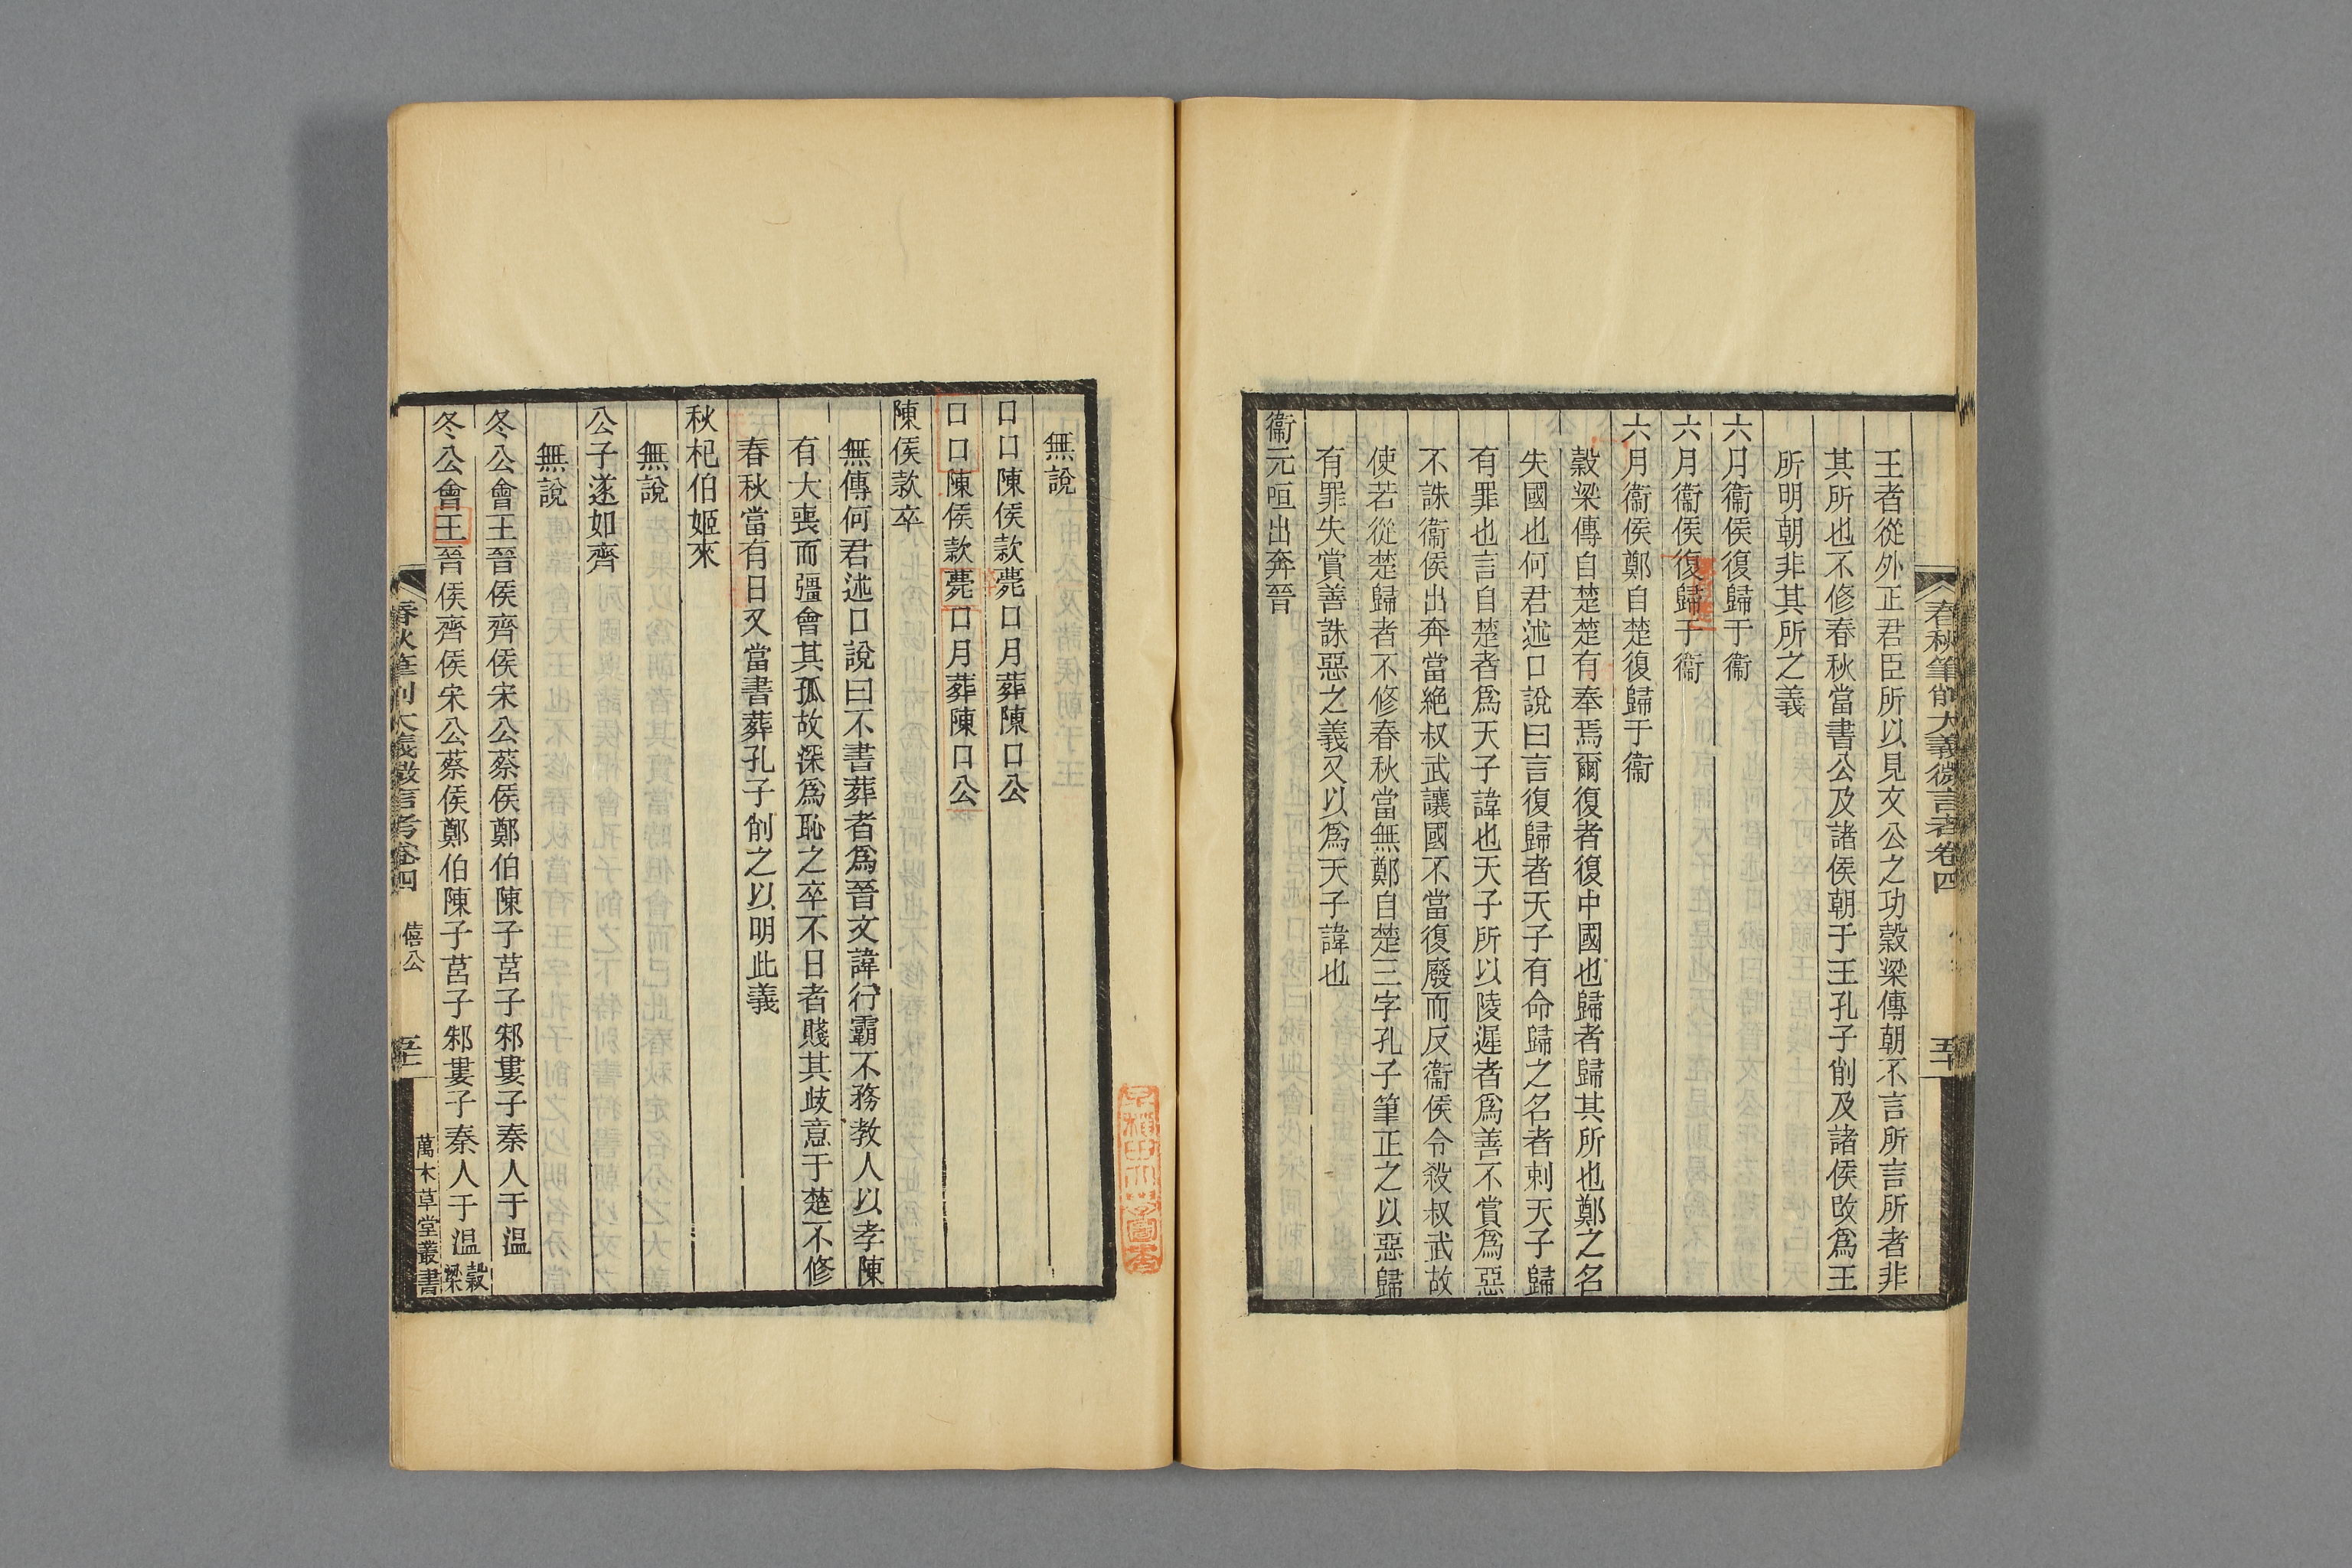 春秋筆削大義微言考卷四
王者從外正君臣所以見文公之功穀梁傳朝不言所言所者非
其所也不修春秋當書公及諸侯朝于王孔子削及諸侯改爲王
所明朝非其所之義
六月衞侯復歸于衞
六月衞侯復歸于衞
六月衞侯鄭自楚復歸于衞
穀梁傳自楚楚有奉焉爾復者復中國也歸者歸其所也鄭之名
失國也何君述口說曰言復歸者天子有命歸之名者刺天子歸
有罪也言自楚者爲天子諱也天子所以陵遲者爲善不賞爲惡
不誅衞侯出奔當絶叔武讓國不當復廢而反衞侯令殺叔武故
使若從楚歸者不修春秋當無鄭自楚三字孔子筆正之以惡歸
有罪失賞善誅惡之義又以爲天子諱也
衞元咺出奔晉
無說
口口陳侯款薨口月葬陳口公
口口陳侯款薨口月葬陳口公
陳侯款卒
無傳何君述口說曰不書葬者爲晉文諱行霸不務教人以孝陳
有大喪而彊會其孤故深爲恥之卒不日者賤其歧意于楚不修
春秋當有日又當書葬孔子削之以明此義
秋杞伯姬來
無說
公子遂如齊
無說
冬公會王晉侯齊侯宋公蔡侯鄭伯陳子莒子邾婁子秦人于溫
冬公會王晉侯齊侯宋公蔡侯鄭伯陳子莒子邾婁子秦人于溫穀梁
春秋筆削大義微言考卷四 僖公
萬木草堂叢書